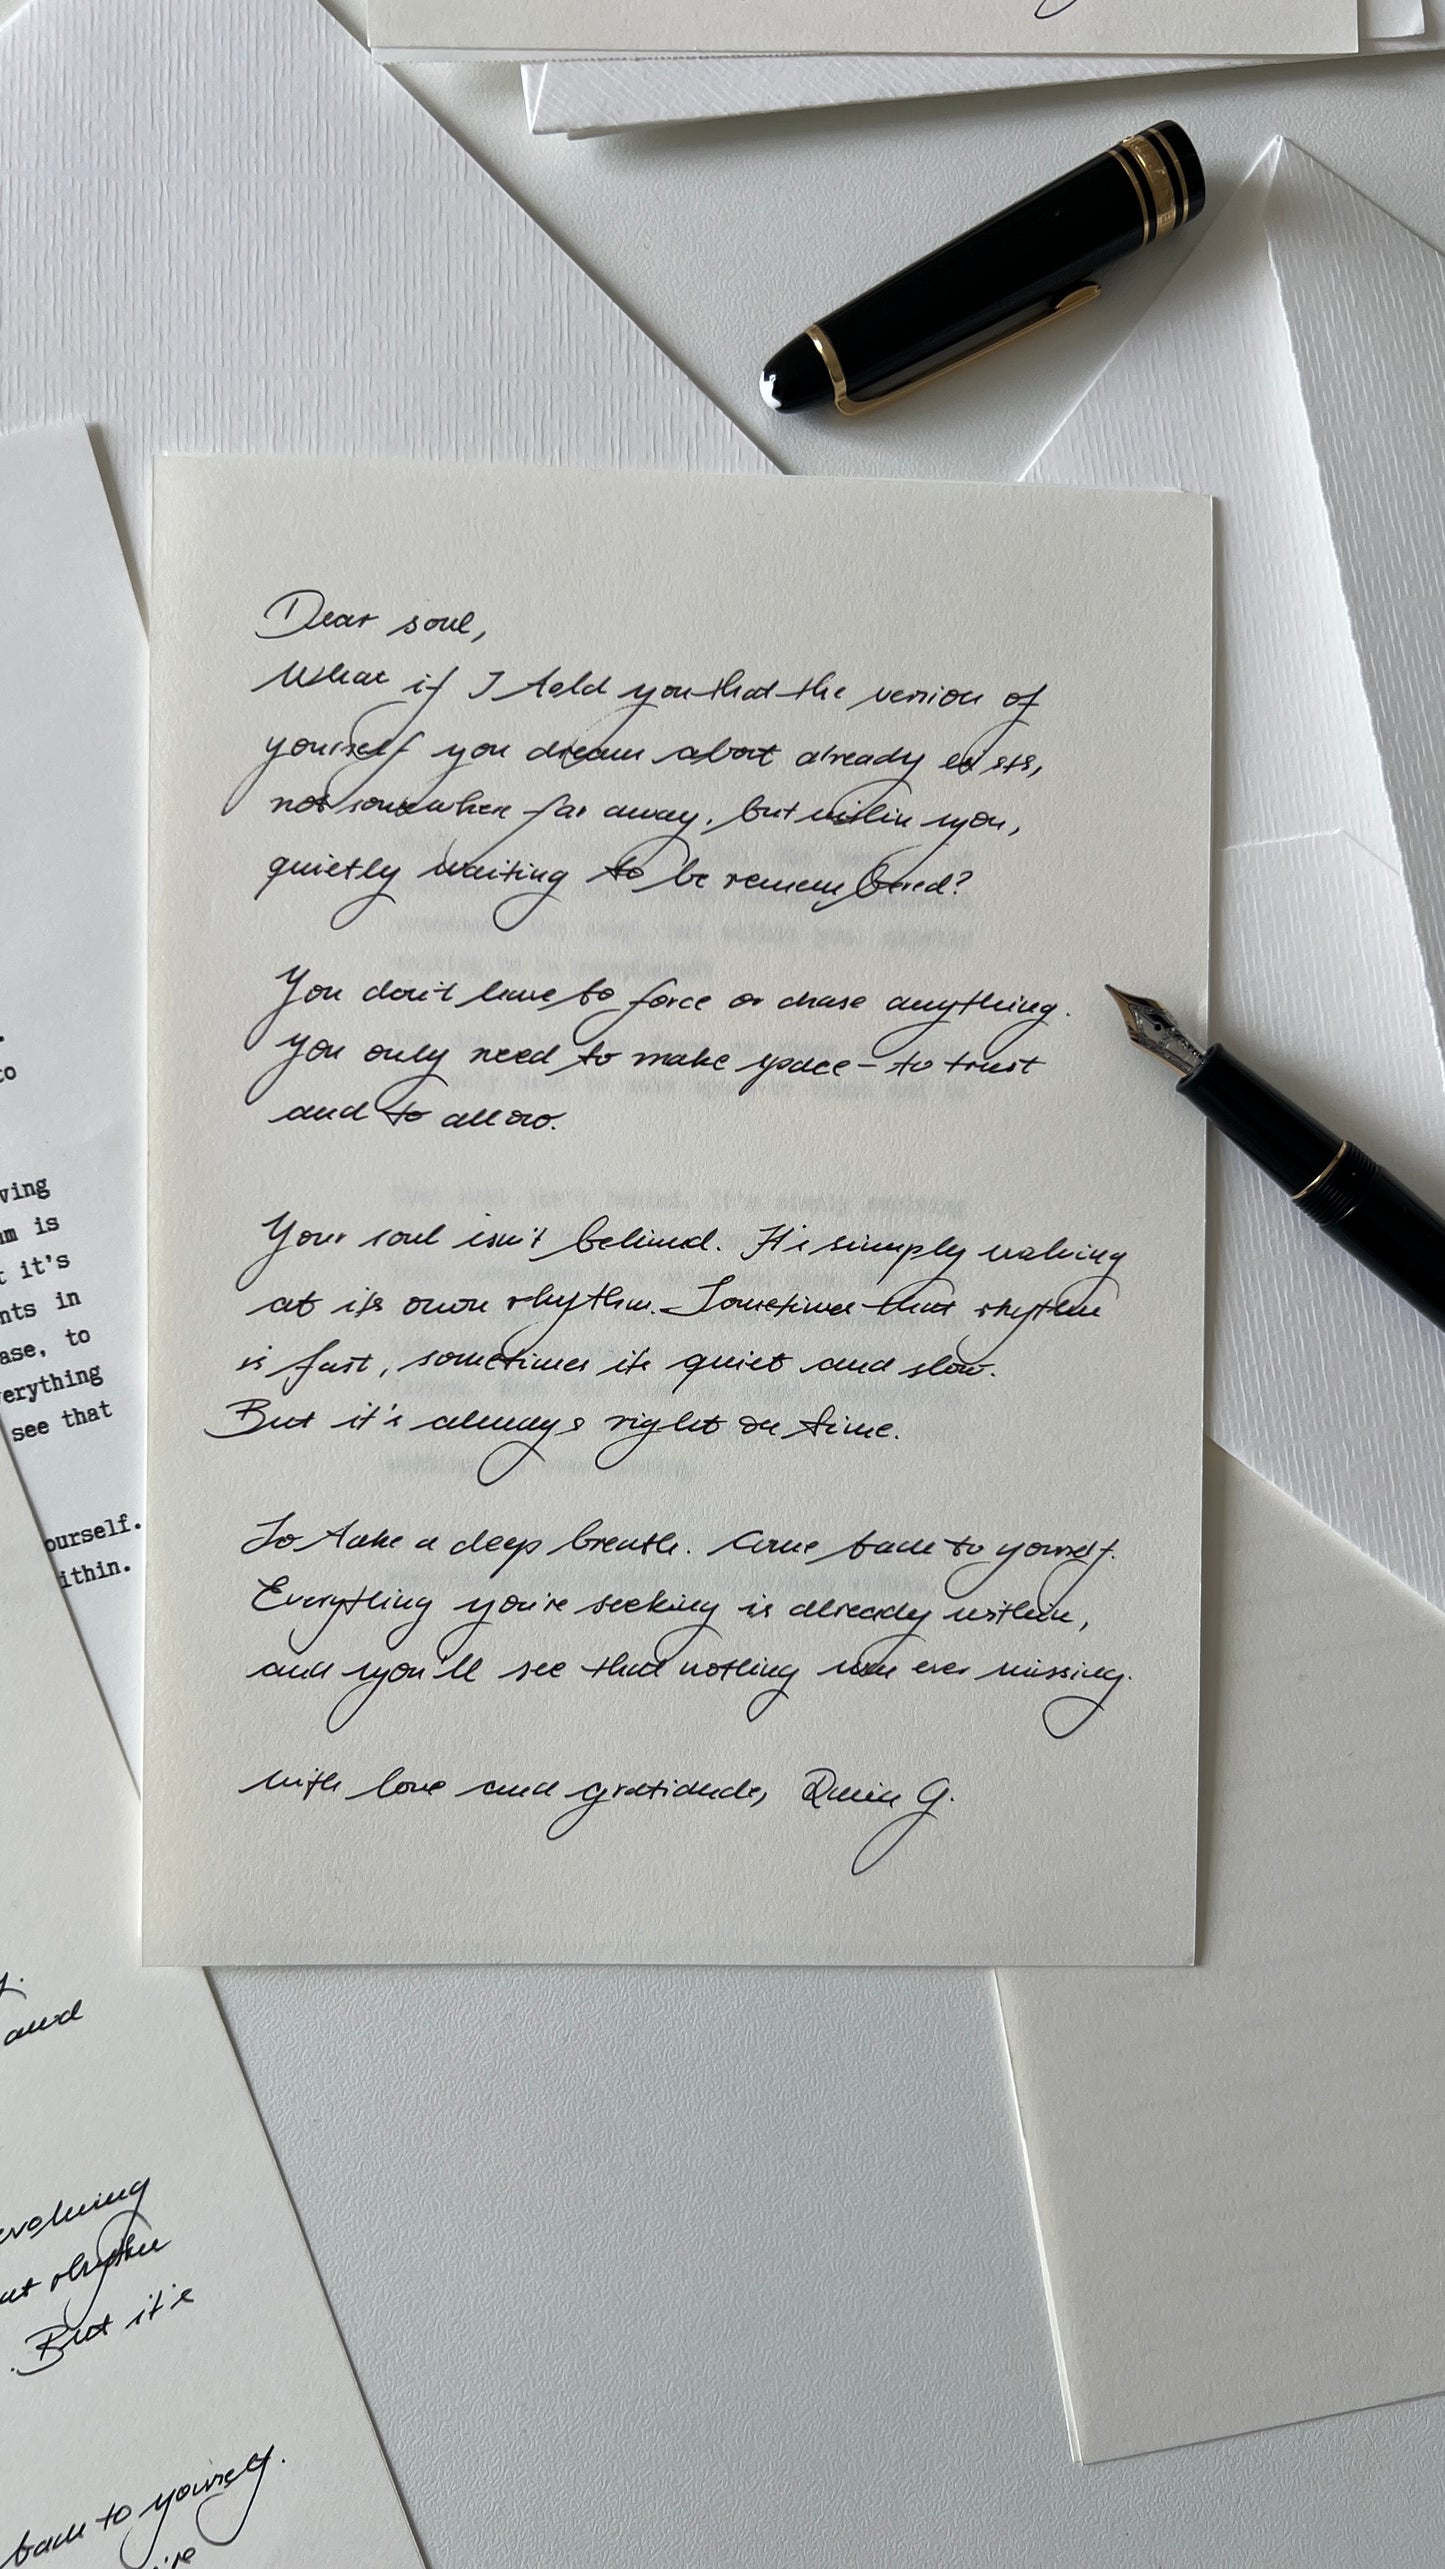 Dear soul,
What if I told you that the version of
yourself you dream about already exists,
not somewhere far away, but within you,
quietly waiting to be remembered?
You don't have to force or chase anything.
You only need to make space – to trust
and to allow.
Your soul isn't behind. It's simply
at its own rhythm. Sometimes that rhythm
is fast, sometimes it's quiet and slow.
But it's always right on time.
So take a deep breath. Come back to yourself.
Everything you're seeking is already within,
and you'll see that nothing was ever missing.
with love and gratidude, G.
to
ving
m is
t it's
nts in
ase, to
erything
see that
ourself.
ithin.
and
evolving
rhythm
But it's
back to yourself.